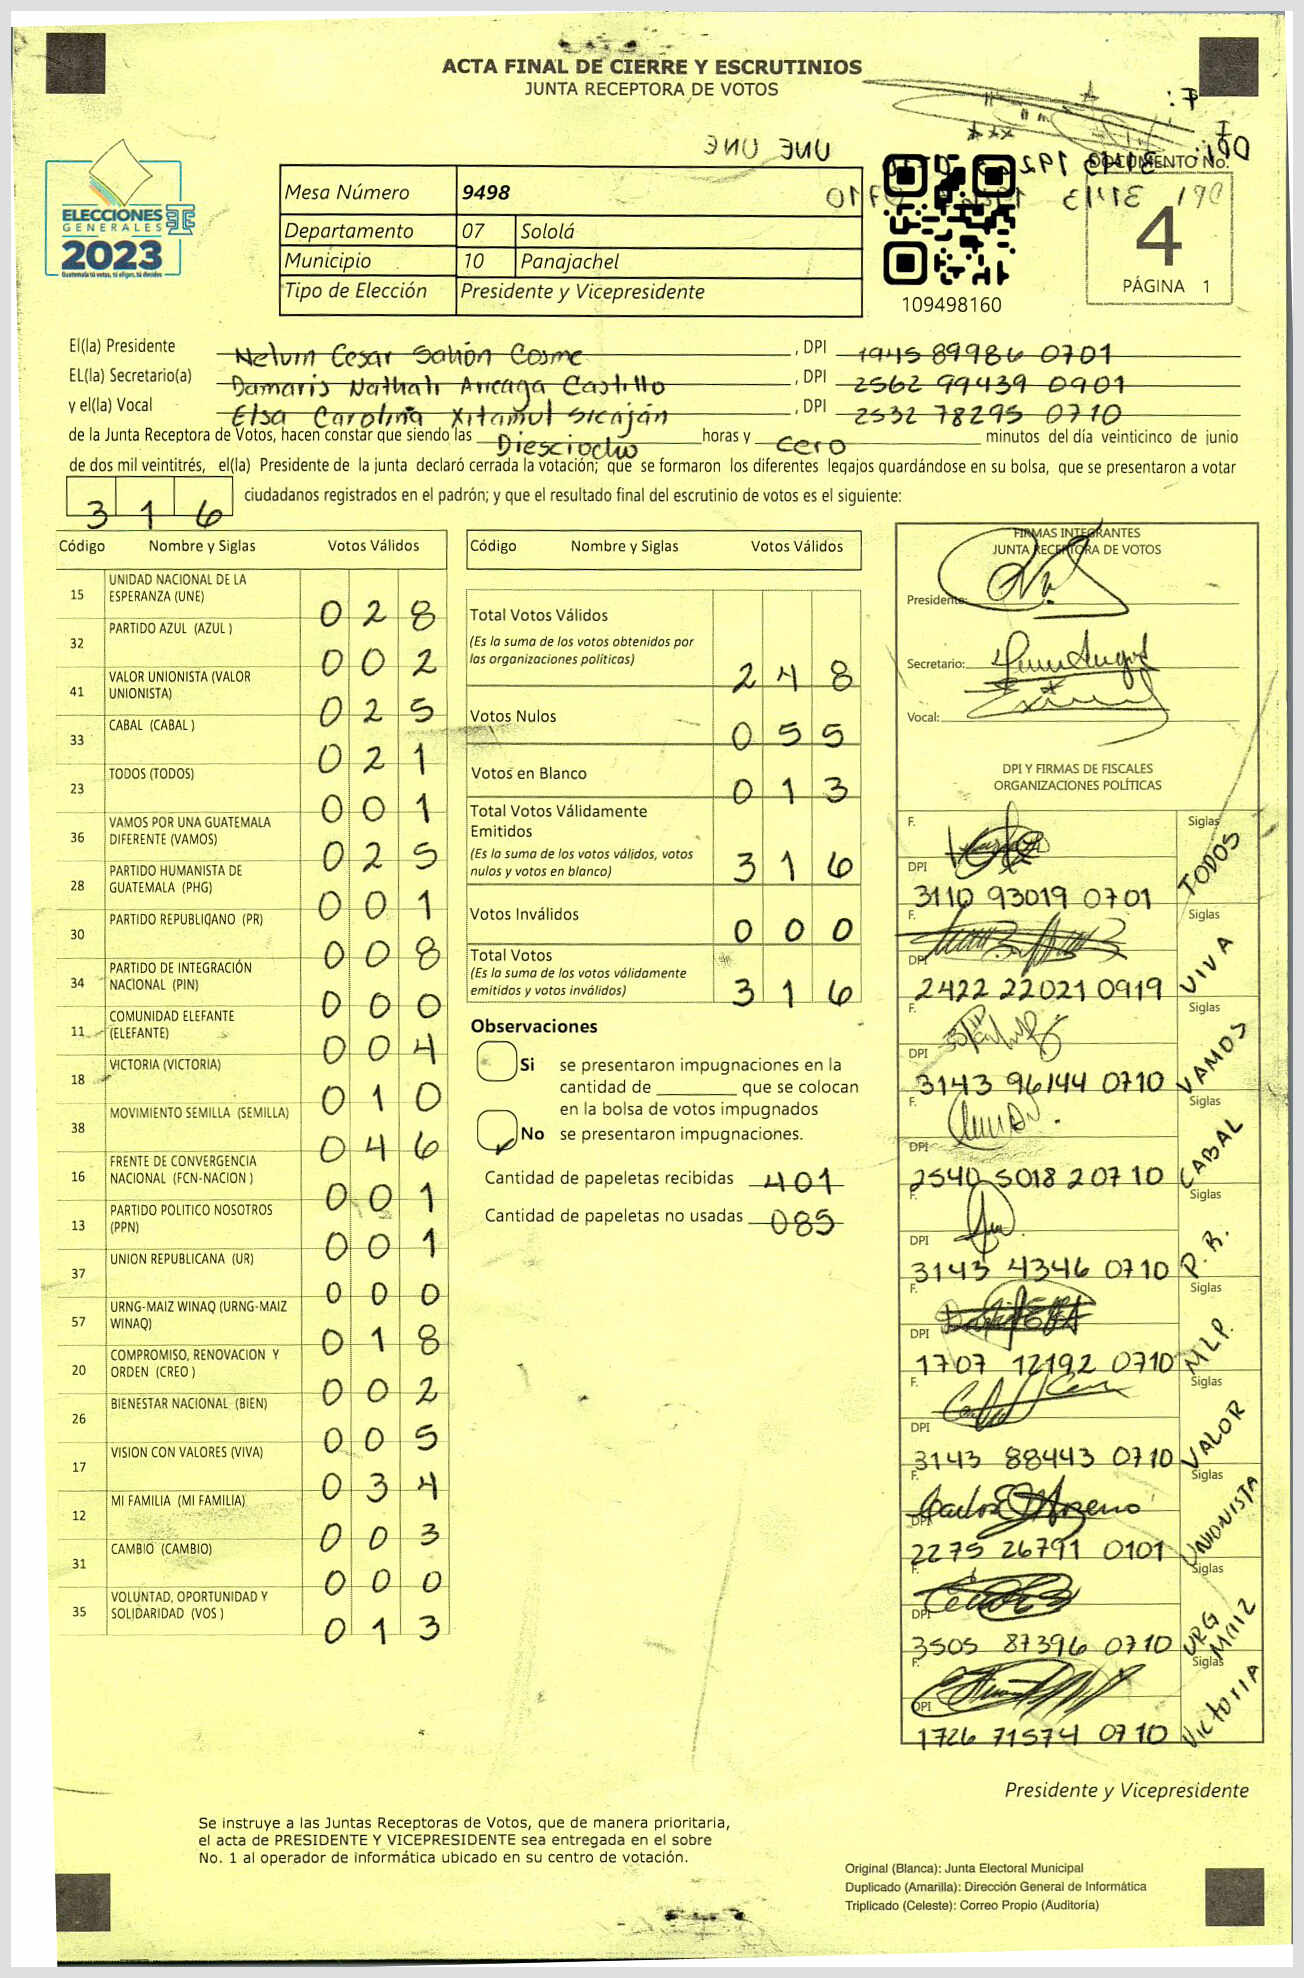 ACTA FINAL DE CIERRE Y ESCRUTINIOS
JUNTA RECEPTORA DE VOTOS
UNE UNE
ELECCIONES
GENERALES
2023
Guatemala tú votas, tú eliges, tú decides
Mesa Número 9498
Departamento 07 Sololá
Municipio 10 Panajachel
Tipo de Elección Presidente y Vicepresidente
109498160
DOCUMENTO No.
4
PÁGINA 1
El(la) Presidente Nelvin Cesar Salión Cosme, DPI 1945 89986 0701
EL(la) Secretario(a) Damaris Nathali Arreaga Castillo, DPI 2562 99439 0901
y el(la) Vocal Elsa Carolina Xitamul Sicaján, DPI 2532 78295 0710
de la Junta Receptora de Votos, hacen constar que siendo las Diesciocho horas y cero minutos del día veinticinco de junio
de dos mil veintitrés, el(la) Presidente de la junta declaró cerrada la votación; que se formaron los diferentes legajos guardándose en su bolsa, que se presentaron a votar
316 ciudadanos registrados en el padrón; y que el resultado final del escrutinio de votos es el siguiente:
Código Nombre y Siglas Votos Válidos
15 UNIDAD NACIONAL DE LA ESPERANZA (UNE) 028
32 PARTIDO AZUL (AZUL ) 002
41 VALOR UNIONISTA (VALOR UNIONISTA) 025
33 CABAL (CABAL ) 021
23 TODOS (TODOS) 001
36 VAMOS POR UNA GUATEMALA DIFERENTE (VAMOS) 025
28 PARTIDO HUMANISTA DE GUATEMALA (PHG) 001
30 PARTIDO REPUBLICANO (PR) 008
34 PARTIDO DE INTEGRACIÓN NACIONAL (PIN) 000
11 COMUNIDAD ELEFANTE (ELEFANTE) 004
18 VICTORIA (VICTORIA) 010
38 MOVIMIENTO SEMILLA (SEMILLA) 046
16 FRENTE DE CONVERGENCIA NACIONAL (FCN-NACION ) 001
13 PARTIDO POLITICO NOSOTROS (PPN) 001
37 UNION REPUBLICANA (UR) 000
57 URNG-MAIZ WINAQ (URNG-MAIZ WINAQ) 018
20 COMPROMISO, RENOVACION Y ORDEN (CREO ) 002
26 BIENESTAR NACIONAL (BIEN) 005
17 VISION CON VALORES (VIVA) 034
12 MI FAMILIA (MI FAMILIA) 003
31 CAMBIO (CAMBIO) 000
35 VOLUNTAD, OPORTUNIDAD Y SOLIDARIDAD (VOS ) 013
Código Nombre y Siglas Votos Válidos
Total Votos Válidos
(Es la suma de los votos obtenidos por
las organizaciones políticas)
248
Votos Nulos 055
Votos en Blanco 013
Total Votos Válidamente
Emitidos
(Es la suma de los votos válidos, votos
nulos y votos en blanco)
316
Votos Inválidos 000
Total Votos
(Es la suma de los votos válidamente
emitidos y votos inválidos)
316
Observaciones
Si se presentaron impugnaciones en la
cantidad de ________ que se colocan
en la bolsa de votos impugnados
No se presentaron impugnaciones.
Cantidad de papeletas recibidas 401
Cantidad de papeletas no usadas 085
FIRMAS INTEGRANTES
JUNTA RECEPTORA DE VOTOS
Presidente:
Secretario:
Vocal:
DPI Y FIRMAS DE FISCALES
ORGANIZACIONES POLÍTICAS
F. Siglas
DPI 3110 93019 0701 TODOS
F. Siglas
DPI 2422 22021 0919 VIVA
F. Siglas
DPI 3143 96144 0710 VAMOS
F. Siglas
DPI 2540 5018 2 0710 CABAL
F. Siglas
DPI 3143 4346 0710 P.R.
F. Siglas
DPI 1707 12192 0710 MLP.
F. Siglas
DPI 3143 88443 0710 VALOR
F. Carlos Moreno Siglas
DPI 2275 26791 0101 UNIONISTA
F. Siglas
DPI 3505 87396 0710 URG MAIZ
F. Siglas
DPI 1726 71574 0710 VICTORIA
Presidente y Vicepresidente
Se instruye a las Juntas Receptoras de Votos, que de manera prioritaria,
el acta de PRESIDENTE Y VICEPRESIDENTE sea entregada en el sobre
No. 1 al operador de informática ubicado en su centro de votación.
Original (Blanca): Junta Electoral Municipal
Duplicado (Amarilla): Dirección General de Informática
Triplicado (Celeste): Correo Propio (Auditoría)